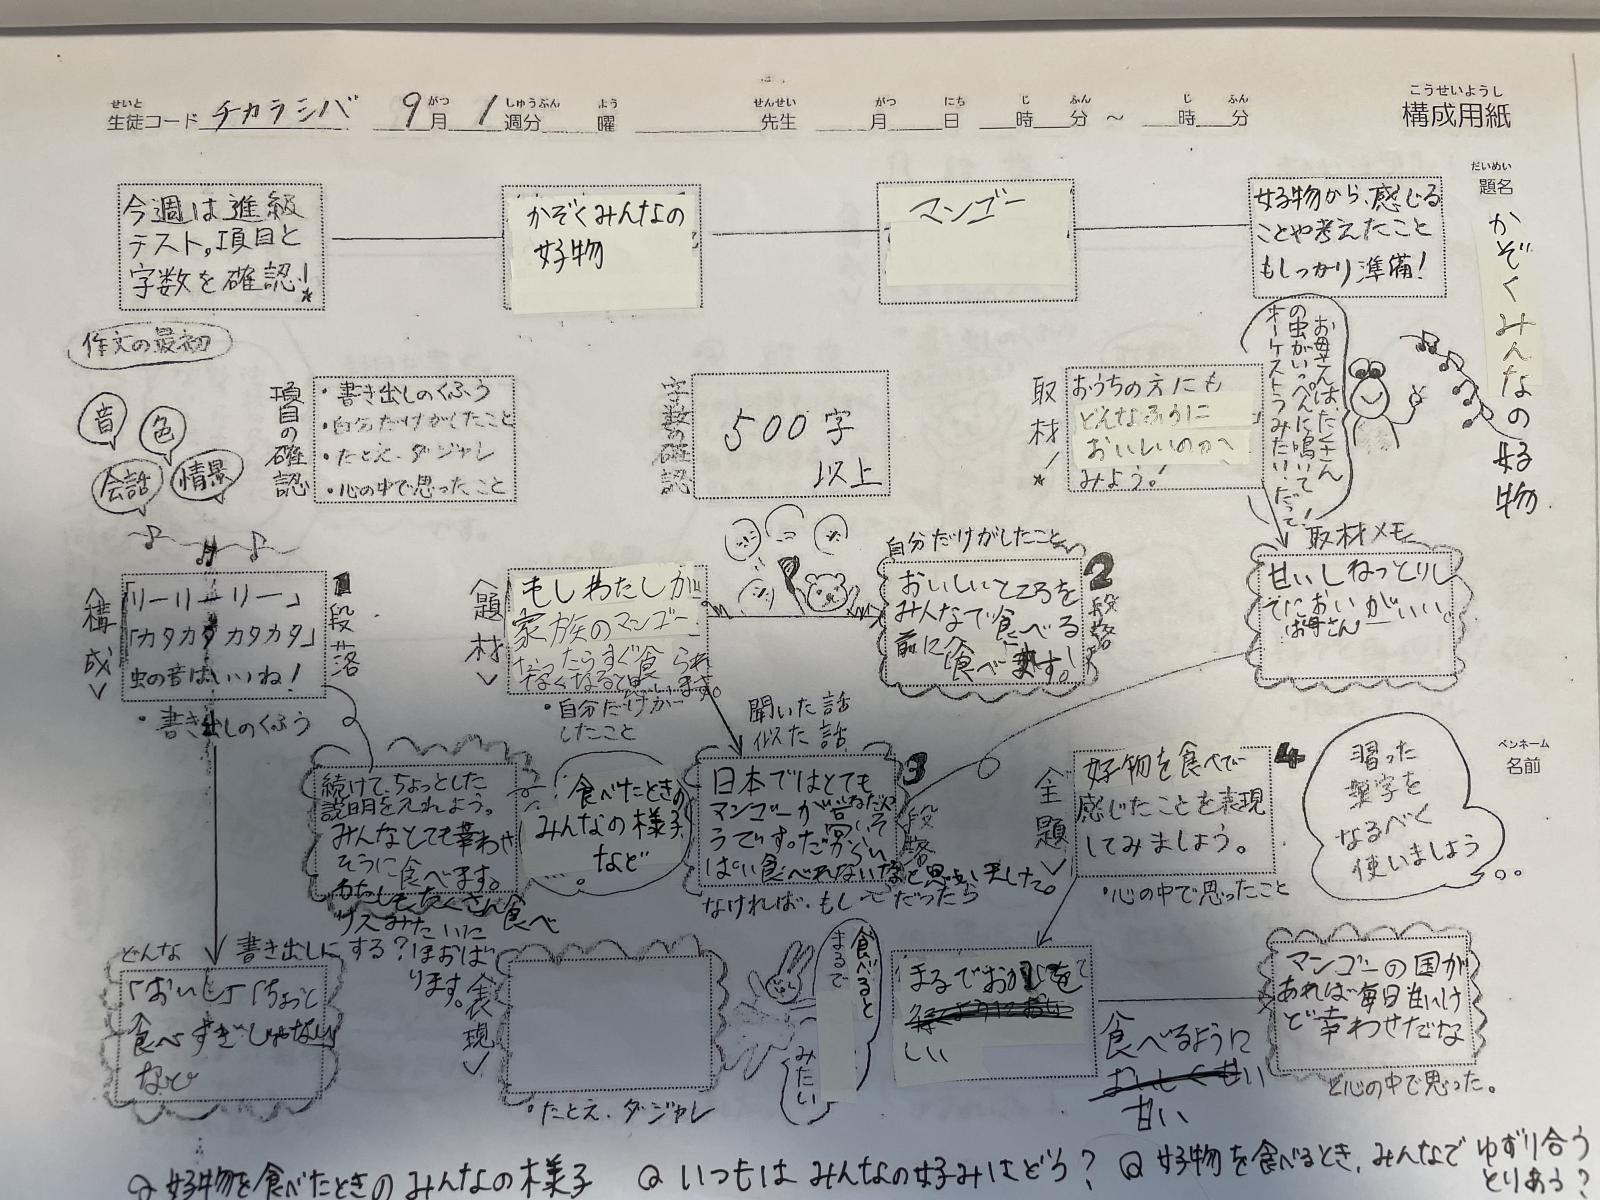 せいと がつ しゅうぶん よう せんせい がつ にち じ ふん じ ふん こうせいようし
生徒コード チカラシバ 9月 1週分 曜 先生 月 日 時 分 ～ 時 分 構成用紙
だいめい
題名
かぞくみんなの好物
今週は進級
テスト。項目と
字数を確認!
かぞくみんなの
好物
マンゴー
好物から、感じる
ことや考えたこと
もしっかり準備!
作文の最初
音
色
会話
情景
項目の確認
・書き出しのくふう
・自分だけがしたこと
・たとえ、ダジャレ
・心の中で思ったこと
字数の確認
500字
以上
取材
おうちの方にも
どんなふうに
おいしいのか
みよう!
お母さんは、たくさん
の虫がいっぺんに鳴いて!
オーケストラみたい、だって!
構成
「リーリーリー」
「カタカタカタカタ」
虫の音はいいね!
1段落
・書き出しのくふう
題材
もしわたしが
家族のマンゴー
なくなると思います。
・自分だけが
したこと
自分だけがしたこと
おいしいところを
みんなで食べる
前に食べます!
2段落
取材メモ
甘いしねっとりし
てにおいがいい。
お母さん
続けて、ちょっとした
説明を入れよう。
みんなとても幸わせ
そうに食べます。
わたしもたくさん食べ
リスみたいに
ほおばります。
食べたときの
みんなの様子
など
聞いた話
似た話
日本ではとても
マンゴーが
ぱい食べれない
と思いました。
なければ、もし〜だったら
3段落
主題
好物を食べて
感じたことを表現
してみましょう。
4
・心の中で思ったこと
習った
漢字を
なるべく
使いましょう
ペンネーム
名前
どんな書き出しにする?
「おいし」「ちょっと
食べすぎじゃない」
など
表現
・たとえ、ダジャレ
食べると
まるで
みたい
まるで
しい
食べるように
甘い
マンゴーの国が
あれば毎日甘いけ
ど幸わせだな
と心の中で思った。
Q 好物を食べたときのみんなの様子 Q いつもはみんなの好みはどう? Q 好物を食べるとき、みんなでゆずり合う
とりあう?